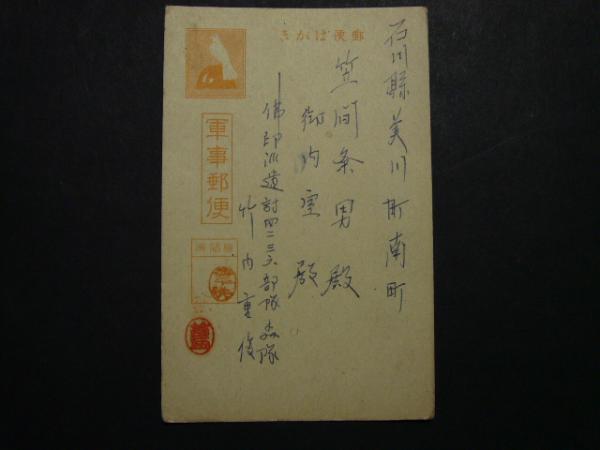 郵便はがき
石川縣美川町南町
笠間条男殿
御内室殿
佛印派遣討四二三六部隊森隊
竹内重俊
軍事郵便
検閲濟